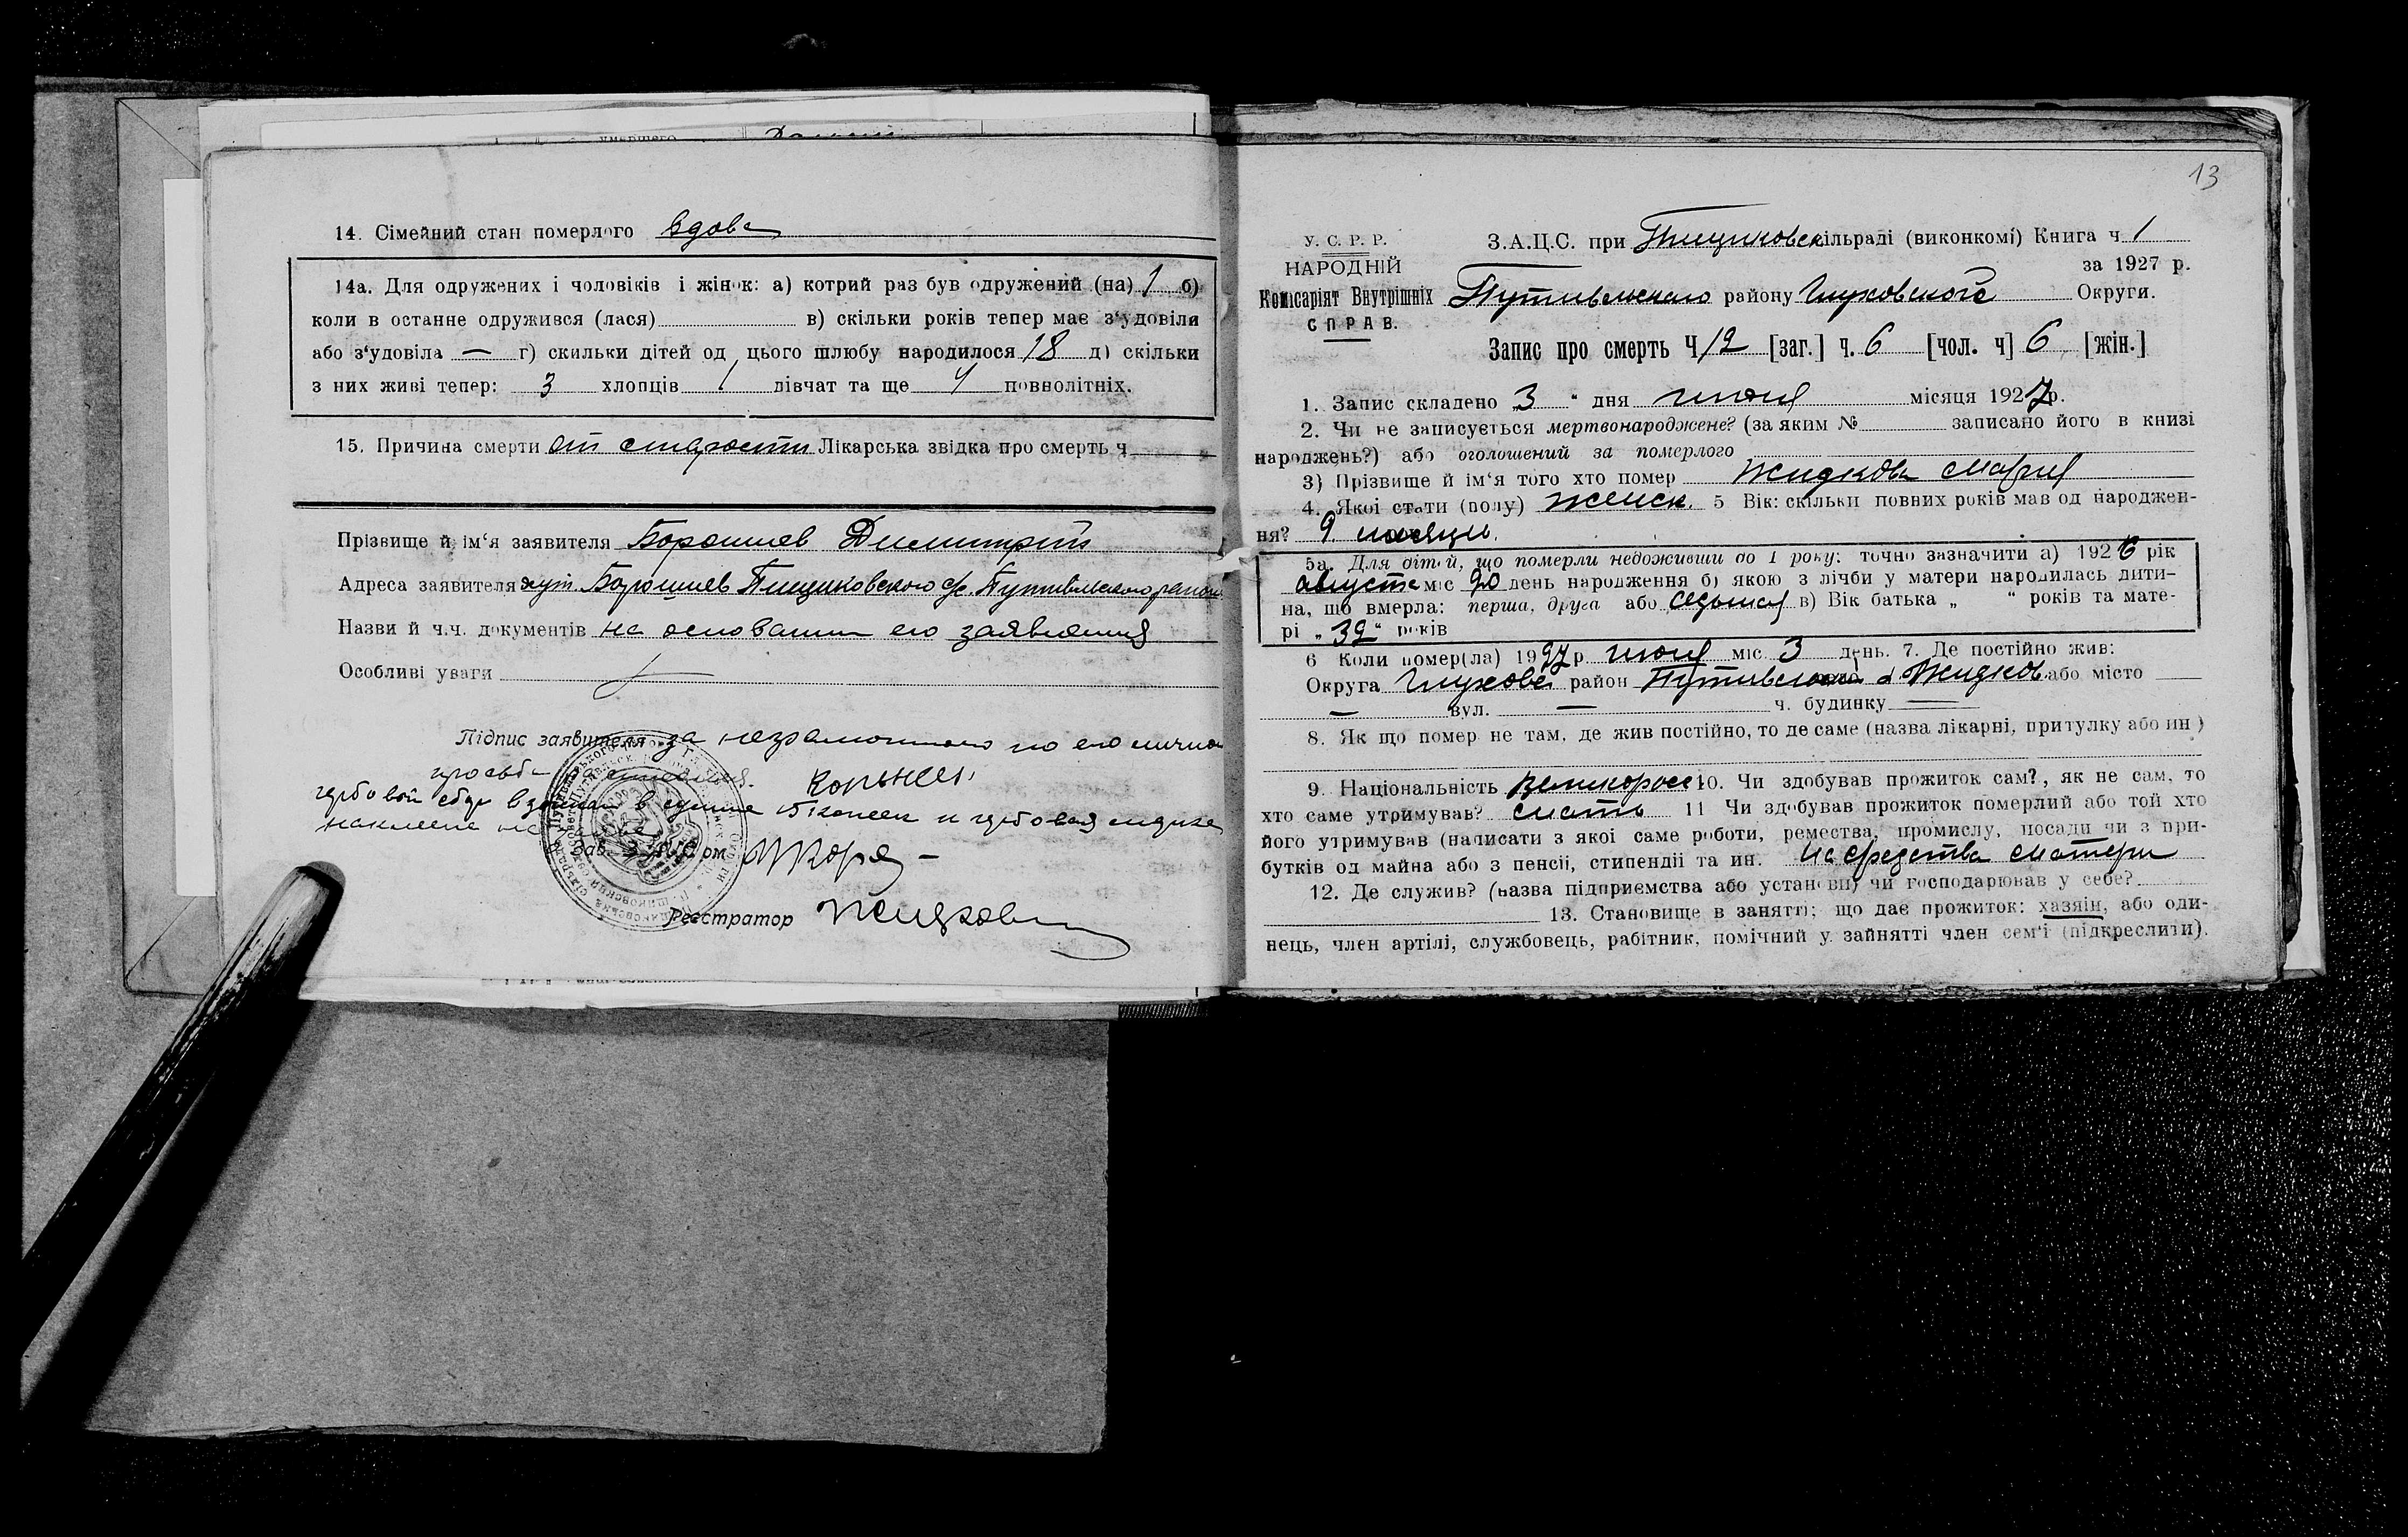 14. Сімейний стан померлого вдова
14а. Для одружених і чоловіків і жінок: а) котрий раз був одружений (на) 1 б)
коли в останне одружився (лася) в) скільки років тепер має з'удовіли
або з'удовіла — г) скильки дітей од цього шлюбу народилося 18 д) скільки
з них живі тепер: 3 хлопців 1 дівчат та ще 4 повнолітніх.
15. Причина смерти от старости Лікарська звідка про смерть ч.
Прізвище й ім'я заявителя Борошнев Дмитрий
Адреса заявителя хут. Борошнев Пищиковского с/с. Путивльского района
Назви й ч.ч. документів на основании его заявления
Особливі уваги
Підпис заявителя за неграмотного по его личной
просьбе Коренев
гербовой сбор взыскан в сумме 15 копеек и гербовая марка
наклеена на
Зав.
Реєстратор Жидков
13
У. С. Р. Р.
НАРОДНІЙ
Комісаріят Внутрішніх
СПРАВ.
З.А.Ц.С. при Пищиковск сільраді (виконкомі) Книга ч 1
за 1927 р.
Путивльского району Глуховского Округи.
Запис про смерть Ч 12 [заг.] ч. 6 [чол. ч] 6 [жін.]
1. Запис складено 3 " дня июня місяця 1927 р.
2. Чи не записується мертвонароджене? (за яким № записано його в книзі
народжень?) або оголошений за померлого
3) Прізвище й ім'я того хто помер Жидкова Мария
4. Якої стати (полу) женск. 5 Вік: скільки повних років мав од народжен-
ня? 9 месяцы.
5а. Для дітей, що померли недоживши до 1 року: точно зазначити а) 1926 рік
августа міс 20 день народження б) якою з лічби у матери народилась дити-
на, що вмерла: перша, друга або седьмая в) Вік батька „ " років та мате-
рі „ 39 " років
6 Коли помер(ла) 1927 р июня міс 3 день. 7. Де постійно жив:
Округа Глухов район Путивльский Жидков або місто —
— вул. — ч. будинку —
8. Як що помер не там, де жив постійно, то де саме (назва лікарні, притулку або ин)
9. Національність великоросс 10. Чи здобував прожиток сам?, як не сам, то
хто саме утримував? мать 11 Чи здобував прожиток померлий або той хто
його утримував (написати з якої саме роботи, ремества, промислу, посади чи з при-
бутків од майна або з пенсії, стипендії та ин. На средства матери
12. Де служив? (назва підприємства або установи) чи господарював у себе?
13. Становище в занятті; що дає прожиток: хазяїн, або оди-
нець, член артілі, службовець, рабітник, помічний у зайнятті член сем'ї (підкреслити).